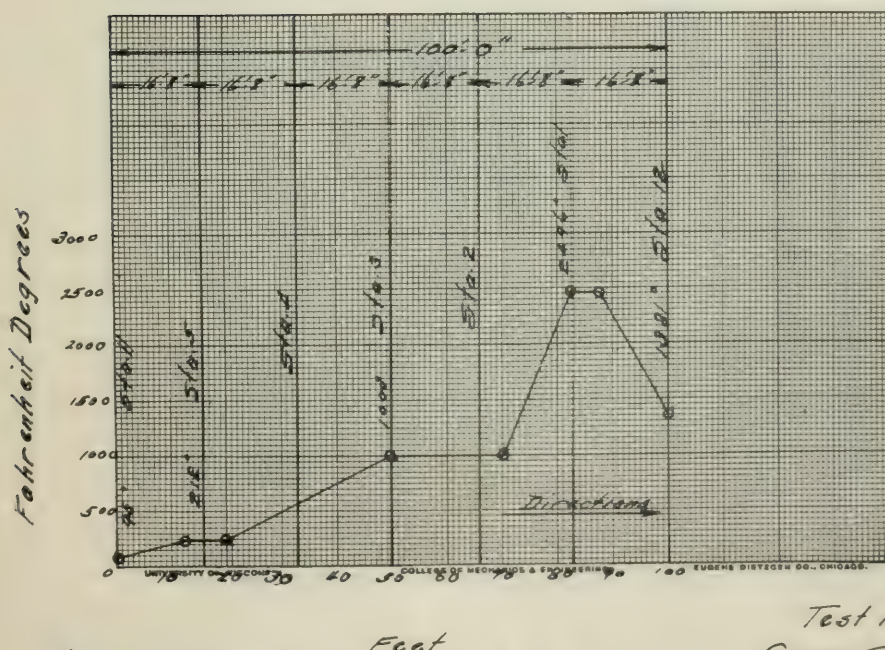 100'-0"
16'8" 16'8" 16'8" 16'8" 16'8" 16'8"
Fahrenheit Degrees
3000
2500
2000
1500
1000
500
Sta. 11
Sta. 5
212°
Sta. 4
Sta. 3
1000
Sta. 2
Sta. 12
Directions
0 10 20 30 40 50 60 70 80 90 100
UNIVERSITY OF WISCONSIN
COLLEGE OF MECHANICS & ENGINEERING
EUGENE DIETZGEN CO., CHICAGO.
Feet
Test